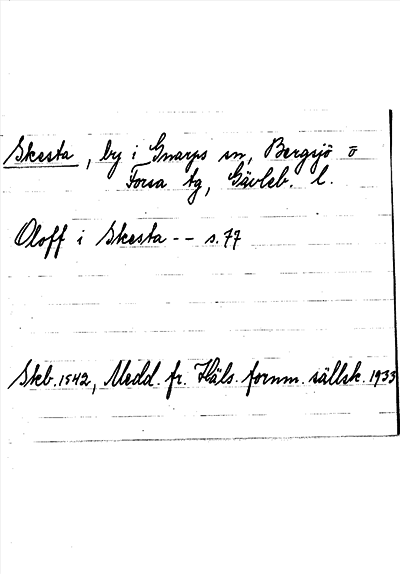 Skesta, by i Gnarps sn, Bergsjö o
Forsa tg, Gävleb. l.
Oloff i Skesta -- s. 77
Skb. 1542, Medd. fr. Häls. fornm. sällsk. 1933